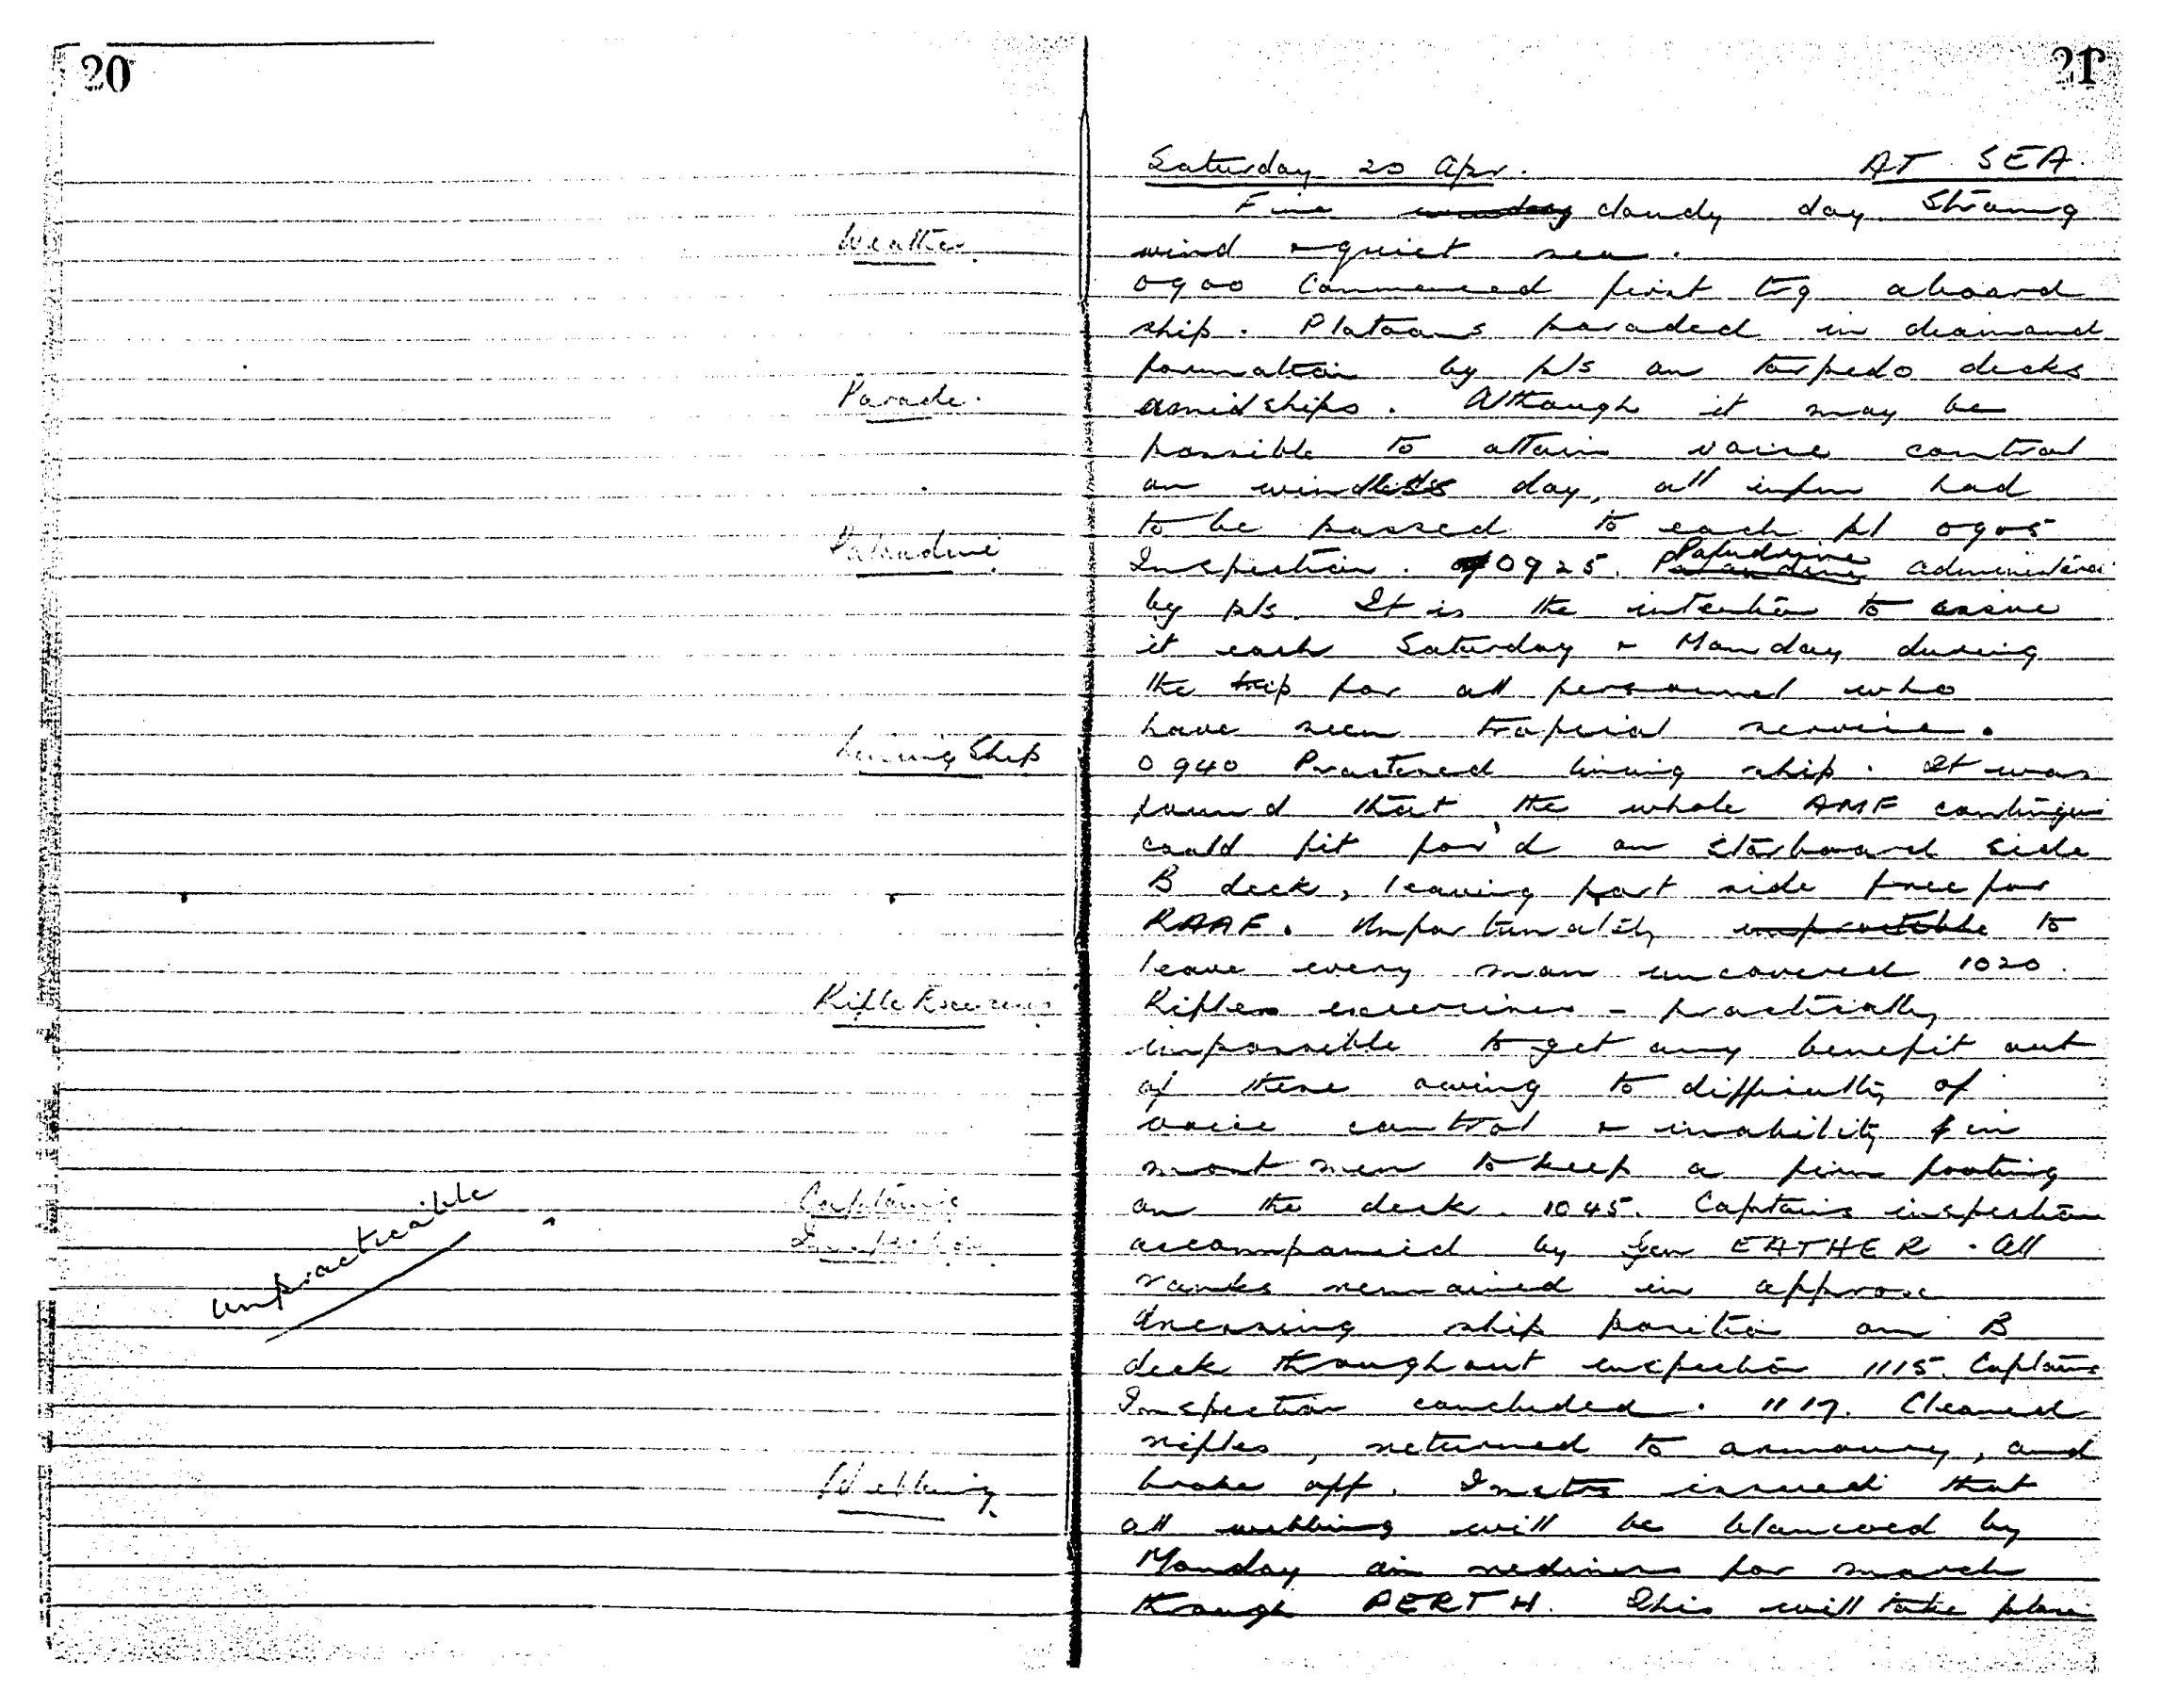 20
Weather
Parade.
Paludrine
Lining Ship
Rifle Exercises
Captain's
Inspection
unpracticable
Webbing
21
Saturday 20 Apr. AT SEA.
Fine windy cloudy day Strong
wind & quiet sea.
0900 Commenced first trg aboard
ship. Platoons paraded in diamond
formation by pls on torpedo decks
amidships. Although it may be
possible to attain voice control
on windless day, all infm had
to be passed to each pl 0905
Inspection. 0925. Paludrine Palaudine administered
by pls. It is the intention to issue
it each Saturday & Monday during
the trip for all personnel who
have seen tropical service.
0940 Practised lining ship. It was
found that the whole AMF contingent
could fit for'd on starboard side
B deck, leaving port side free for
RAAF. Unfortunately unpractible to
leave every man uncovered 1020.
Rifles exercises - practically
impossible to get any benefit out
of these owing to difficulty of
voice control & inability in
most men to keep a firm footing
on the deck. 1045. Captains inspection
accompanied by Gen EATHER. All
ranks remained in approx
dressing ship position on B
deck throughout inspection 1115. Captains
Inspection concluded. 1117. Cleaned
rifles, returned to armoury, and
broke off. Instrs issued that
all webbing will be blancoed by
Monday in rediness for march
through PERTH. This will take place